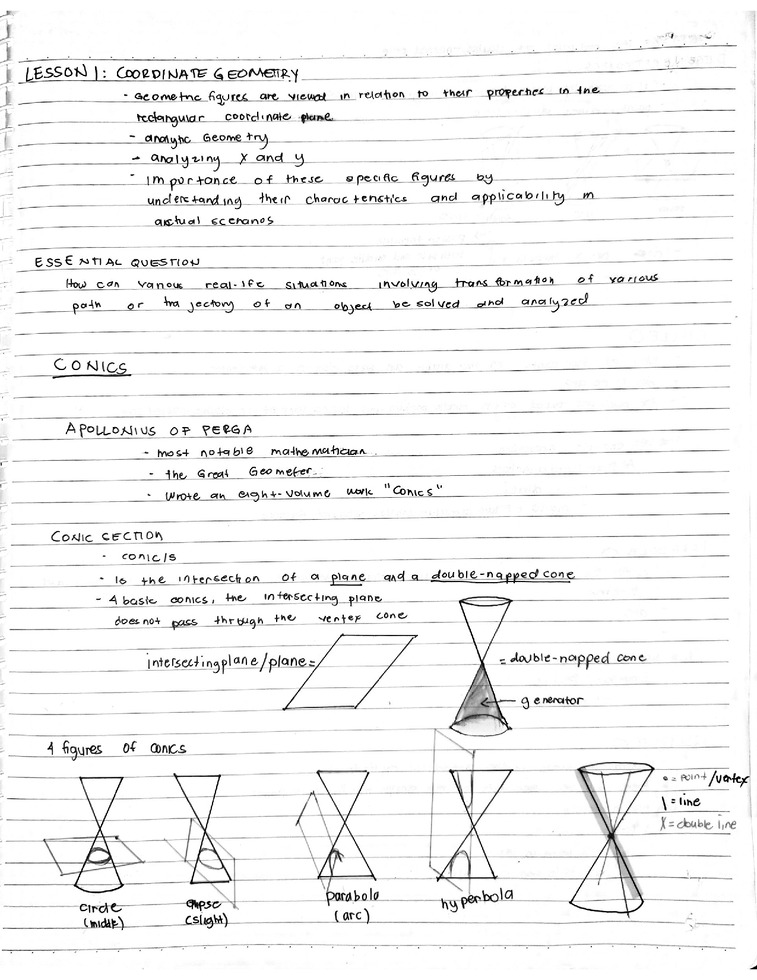 LESSON 1: COORDINATE GEOMETRY
- Geometric figures are viewed in relation to their properties in the
rectangular coordinate plane
- analytic Geometry
- analyzing x and y
- Importance of these specific figures by
understanding their characteristics and applicability in
actual scenarios
ESSENTIAL QUESTION
How can various real-life situations involving transformation of various
path or trajectory of an object be solved and analyzed
CONICS
APOLLONIUS OF PERGA
- most notable mathematician
- the Great Geometer.
- Wrote an eight-volume work "Conics"
CONIC SECTION
- conic/s
- Is the intersection of a plane and a double-napped cone
- 4 basic conics, the intersecting plane
does not pass through the vertex cone
intersecting plane/plane=
= double-napped cone
generator
4 figures of conics
• = point/vertex
\ = line
X = double line
circle
(middle)
(slight)
parabola
(arc)
hyperbola